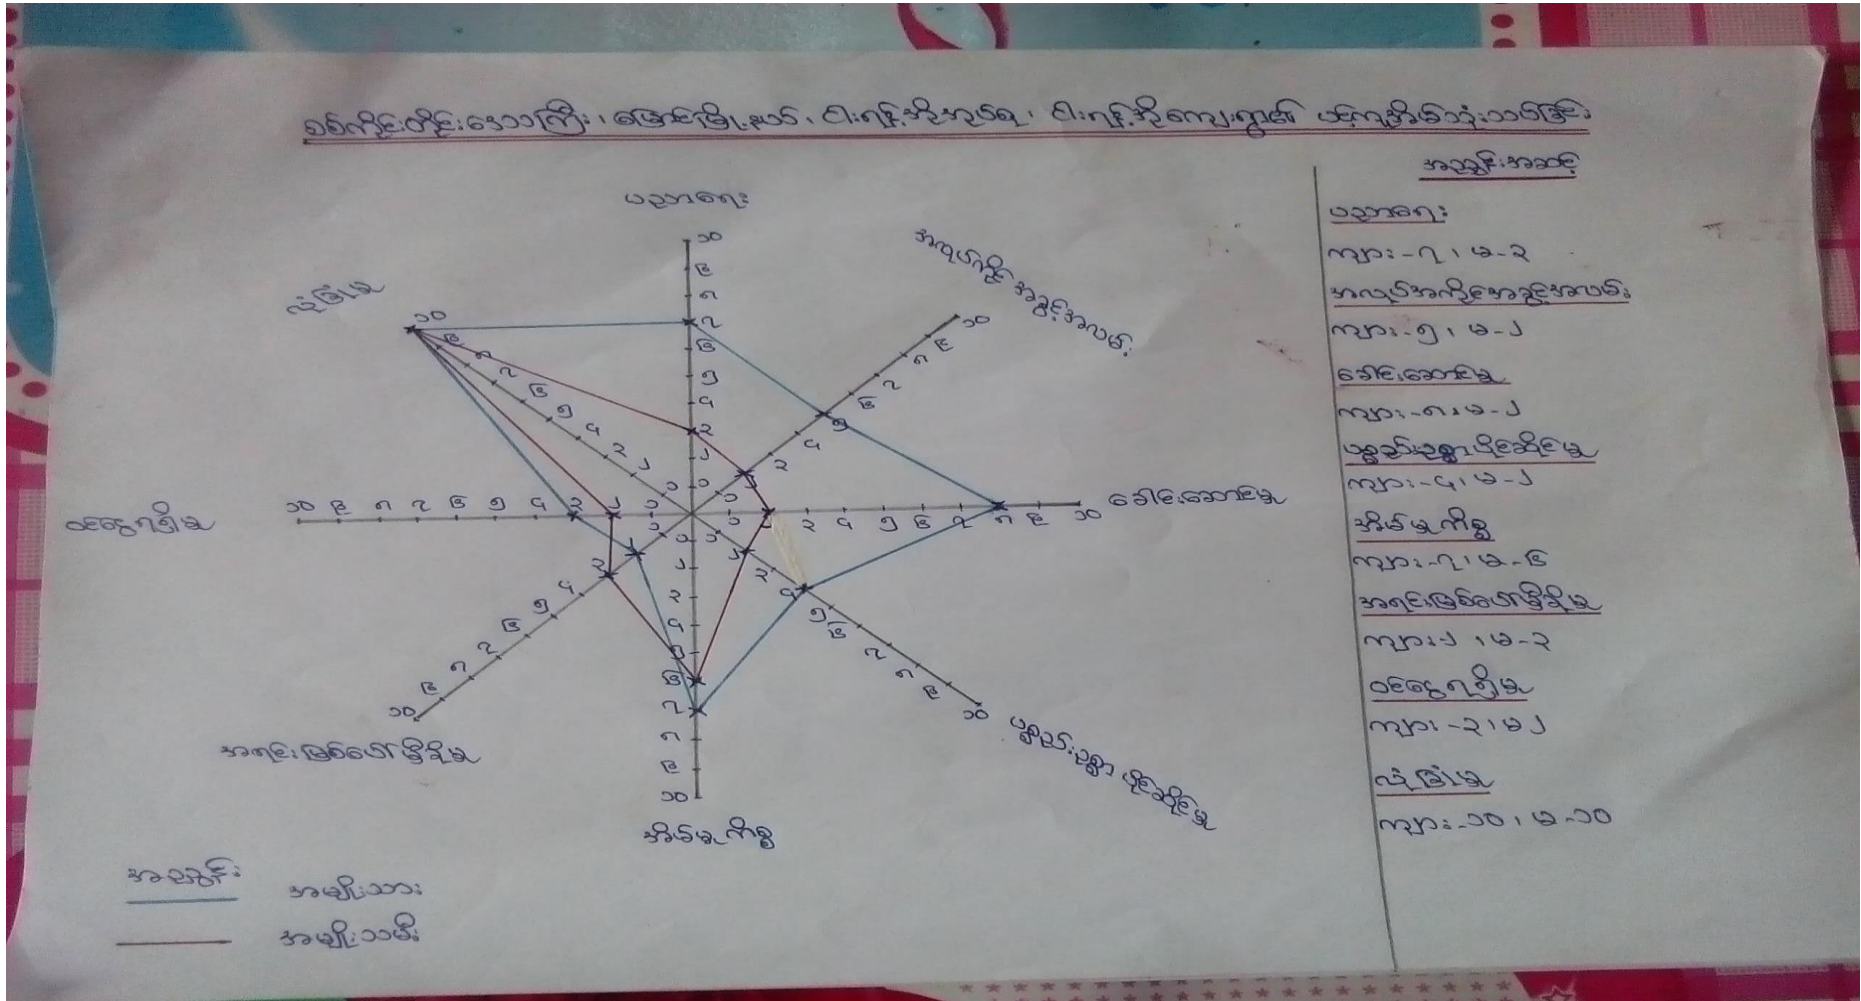 စစ်ကိုင်းတိုင်းဒေသကြီး၊ မြောင်မြို့နယ်၊ ငါးရန့်အိုအုပ်စု၊ ငါးရန့်အိုကျေးရွာ၏ ပင့်ကူအိမ်သုံးသပ်ခြင်း
ပညာရေး
၁၀
၉
၈
၇
၆
၅
၄
၃
၂
၁
အလုပ်ကိုင် အခွင့်အလမ်း
၁၀
၉
၈
၇
၆
၅
၄
၃
၂
၁
ခေါင်းဆောင်မှု
၁ ၂ ၃ ၄ ၅ ၆ ၇ ၈ ၉ ၁၀
ပစ္စည်းဥစ္စာ ပိုင်ဆိုင်မှု
၁
၂
၃
၄
၅
၆
၇
၈
၉
၁၀
အိမ်မှုကိစ္စ
၁
၂
၃
၄
၅
၆
၇
၈
၉
၁၀
အရင်းမြစ်ပေါ်မှီခိုမှု
၁
၂
၃
၄
၅
၆
၇
၈
၉
၁၀
ဝင်ငွေရရှိမှု
၁၀ ၉ ၈ ၇ ၆ ၅ ၄ ၃ ၂ ၁
လုံခြုံမှု
၁၀
၉
၈
၇
၆
၅
၄
၃
၂
၁
အညွှန်း
အမျိုးသား
အမျိုးသမီး
အညွှန်းအဆင့်
ပညာရေး
ကျား-၇၊ မ-၃
အလုပ်အကိုင်အခွင့်အလမ်း
ကျား-၅၊ မ-၂
ခေါင်းဆောင်မှု
ကျား-၈၊ မ-၂
ပစ္စည်းဥစ္စာပိုင်ဆိုင်မှု
ကျား-၄၊ မ-၂
အိမ်မှုကိစ္စ
ကျား-၇၊ မ-၆
အရင်းမြစ်ပေါ်မှီခိုမှု
ကျား-၂၊ မ-၃
ဝင်ငွေရရှိမှု
ကျား-၃၊ မ၂
လုံခြုံမှု
ကျား-၁၀၊ မ-၁၀